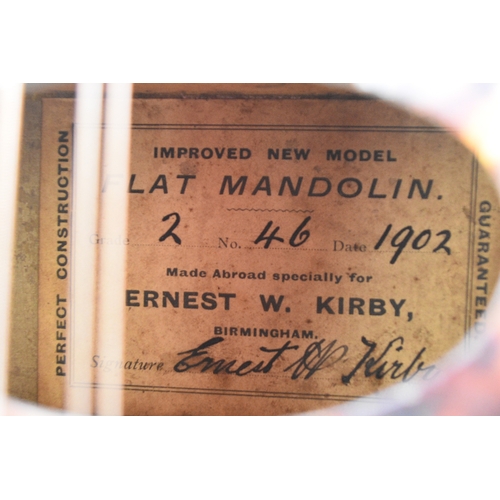 IMPROVED NEW MODEL
FLAT MANDOLIN.
Grade 2 No. 46 Date 1902
Made Abroad specially for
ERNEST W. KIRBY,
BIRMINGHAM.
Signature Ernest W Kirby
PERFECT CONSTRUCTION
GUARANTEED